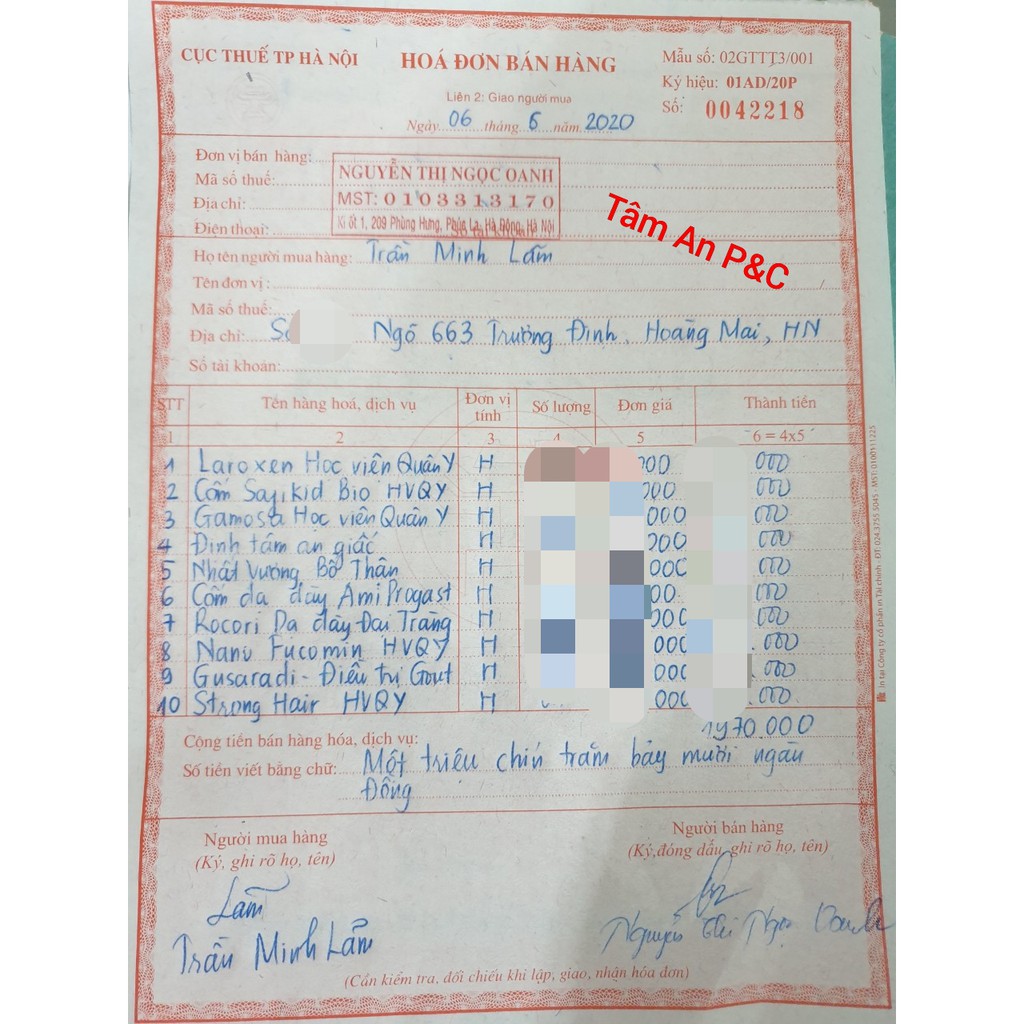 CỤC THUẾ TP HÀ NỘI
HOÁ ĐƠN BÁN HÀNG
Mẫu số: 02GTTT3/001
Ký hiệu: 01AD/20P
Liên 2: Giao người mua
Số: 0042218
Ngày 06 tháng 6 năm 2020
Đơn vị bán hàng:
NGUYỄN THỊ NGỌC OANH
Mã số thuế:
MST: 0103313170
Địa chỉ:
Ki ốt 1, 209 Phùng Hưng, Phúc La, Hà Đông, Hà Nội
Điện thoại:
Tâm An P&C
Họ tên người mua hàng: Trần Minh Lâm
Tên đơn vị:
Mã số thuế:
Địa chỉ: Số Ngõ 663 Trương Định, Hoàng Mai, HN
Số tài khoản:
STT Tên hàng hoá, dịch vụ Đơn vị tính Số lượng Đơn giá Thành tiền
1 2 3 4 5 6 = 4x5
1 Laroxen Học viện Quân Y H 000 000
2 Cốm Sagikid Bio HVQY H 000 000
3 Gamosa Học viện Quân Y H 000 000
4 Định tâm an giấc H 000 000
5 Nhất Vương Bổ Thận H 000 000
6 Cốm dạ dày Ami Progast H 000 000
7 Rocori Dạ dày Đại Tràng H 000 000
8 Nano Fucomin HVQY H 000 000
9 Gusaradi - Điều trị Gout H 000 000
10 Strong Hair HVQY H 000 000
Cộng tiền bán hàng hóa, dịch vụ: 1970.000
Số tiền viết bằng chữ: Một triệu chín trăm bảy mươi ngàn
Đồng
Người mua hàng
Người bán hàng
(Ký, ghi rõ họ, tên)
(Ký,đóng dấu, ghi rõ họ, tên)
Lâm
Trần Minh Lâm
Nguyễn Thị Ngọc Oanh
(Cần kiểm tra, đối chiếu khi lập, giao, nhận hóa đơn)